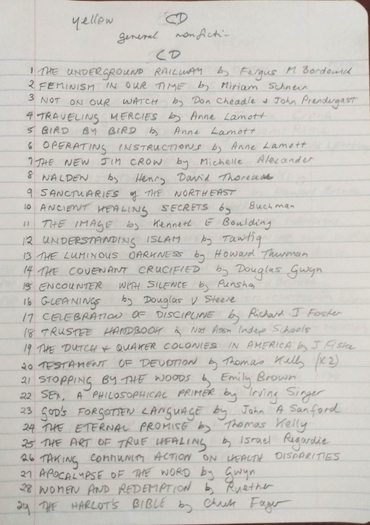 yellow CD
general nonficti-
CD
1 THE UNDERGROUND RAILWAY by Fergus M Bordewich
2 FEMINISM IN OUR TIME by Miriam Schneir
3 NOT ON OUR WATCH by Don Cheadle & John Prendergast
4 TRAVELING MERCIES by Anne Lamott
5 BIRD BY BIRD by Anne Lamott
6 OPERATING INSTRUCTIONS by Anne Lamott
7 THE NEW JIM CROW by Michelle Alexander
8 WALDEN by Henry David Thoreau
9 SANCTUARIES of THE NORTHEAST
10 ANCIENT HEALING SECRETS by Buchman
11 THE IMAGE by Kenneth E Boulding
12 UNDERSTANDING ISLAM by Tawfiq
13 THE LUMINOUS DARKNESS by Howard Thurman
14 THE COVENANT CRUCIFIED by Douglas Gwyn
15 ENCOUNTER WITH SILENCE by Punshon
16 GLEANINGS by Douglas V Steere
17 CELEBRATION OF DISCIPLINE by Richard J Foster
18 TRUSTEE HANDBOOK by Nat Assn Indep Schools
19 THE DUTCH & QUAKER COLONIES IN AMERICA by J Fiske
20 TESTAMENT OF DEVOTION by Thomas Kelly (x2)
21 STOPPING BY THE WOODS by Emily Brown
22 SEX, A PHILOSOPHICAL PRIMER by Irving Singer
23 GOD'S FORGOTTEN LANGUAGE by John A Sanford
24 THE ETERNAL PROMISE by Thomas Kelly
25 THE ART OF TRUE HEALING by Israel Regardie
26 TAKING COMMUNITY ACTION ON HEALTH DISPARITIES
27 APOCALYPSE OF THE WORD by Gwyn
28 WOMEN AND REDEMPTION by Ruether
29 THE HARLOT'S BIBLE by Chuck Fager